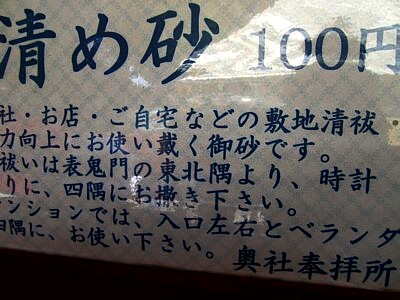 清め砂 100円
社・お店・ご自宅などの敷地清祓
力向上にお使い戴く御砂です。
祓いは表鬼門の東北隅より、時計
りに、四隅にお撒き下さい。
ンションでは、入口左右とベランダ
四隅に、お使い下さい。
奥社奉拝所